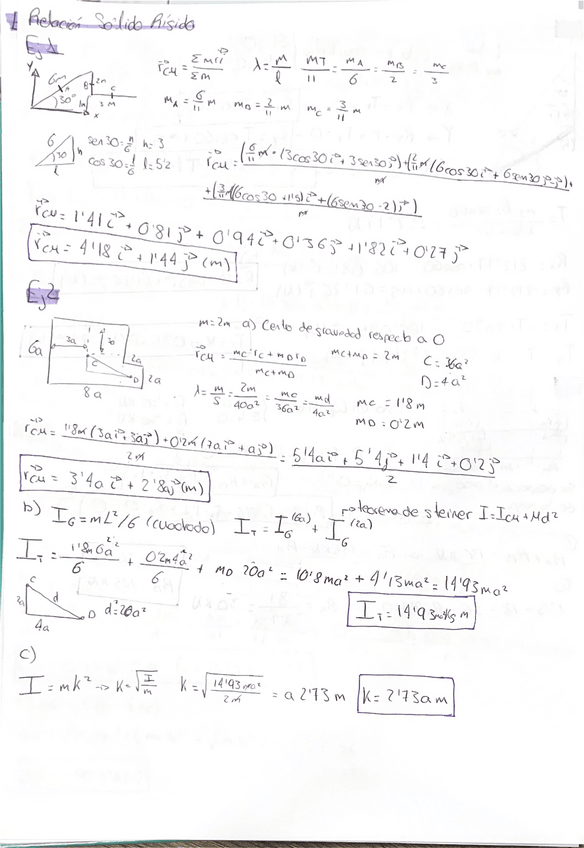 1 Relación Sólido Rígido
Ej 1
r⃗CM = Σmr⃗i / Σm   λ = M/l   MT/11 = mA/6 = mB/2 = mC/3
mA = 6/11 m   mB = 2/11 m   mC = 3/11 m
Y
6m
A
B
2m
C
30°
1m
3 M
x
6
30
h
l
sen30 = h/6   h = 3
cos30 = l/6   l = 5'2
r⃗CM = (6/11 m · (3cos30 i⃗ + 3sen30 j⃗) + (2/11 m)(6cos30 i⃗ + 6sen30 j⃗ - j⃗) +
+ (3/11 m)(6cos30 + 1'5) i⃗ + (6sen30 - 2) j⃗) / m
r⃗CM = 1'41 i⃗ + 0'81 j⃗ + 0'94 i⃗ + 0'36 j⃗ + 1'82 i⃗ + 0'27 j⃗
r⃗CM = 4'18 i⃗ + 1'44 j⃗ (m)
Ej 2
6a
3a
C
D
2a
8a
m = 2m   a) Cento de gravedad respecto a O
r⃗CM = (mC · rC + mD rD) / (mC + mD)   mC + mD = 2m   C = 36a²
D = 4a²
λ = m/S = 2m/40a² = mC/36a² = md/4a²   mC = 1'8 m
mD = 0'2 m
r⃗CM = (1'8m (3a i⃗ + 3a j⃗) + 0'2m (7a i⃗ + a j⃗)) / 2m = (5'4a i⃗ + 5'4 j⃗ + 1'4 i⃗ + 0'2 j⃗) / 2
r⃗CM = 3'4a i⃗ + 2'8a j⃗ (m)
b) IG = mL²/6 (cuadrado)   IT = IG(6a) + IG(2a)   teorema de steiner I = ICM + Md²
IT = 1'8m 6a²/6 + 0'2m 4a²/6 + mD 20a² = 10'8 ma² + 4'13 ma² = 14'93 ma²
C
2a
d
D
4a
d² = 20a²
IT = 14'93 m
c)
I = mk² → K = √(I/m)   K = √(14'93 ma²/2m) = a 2'73 m   K = 2'73a m